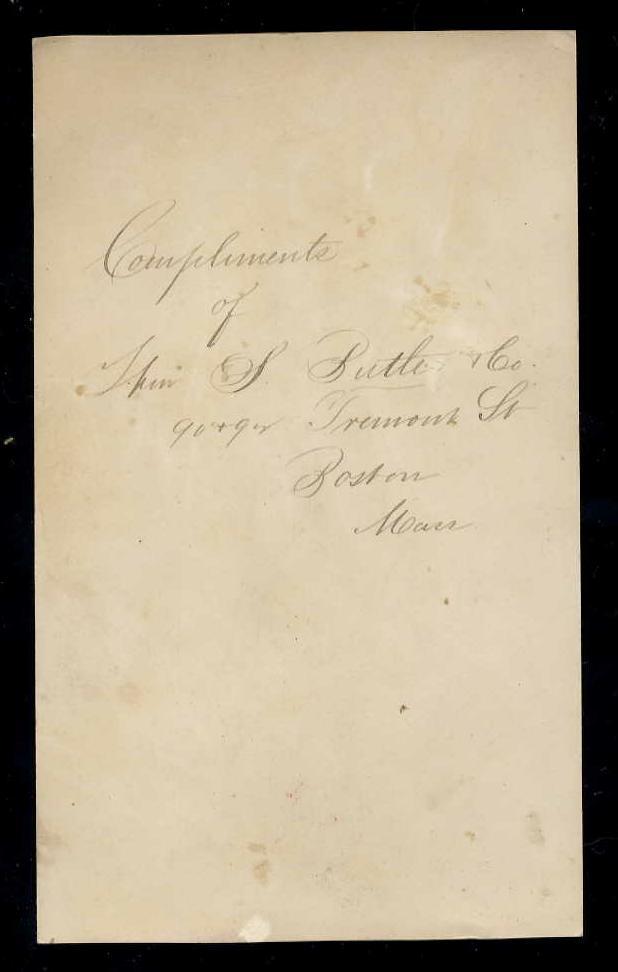 Compliments
of
S. Butler & Co.
90 & 92 Tremont St
Boston
Mass